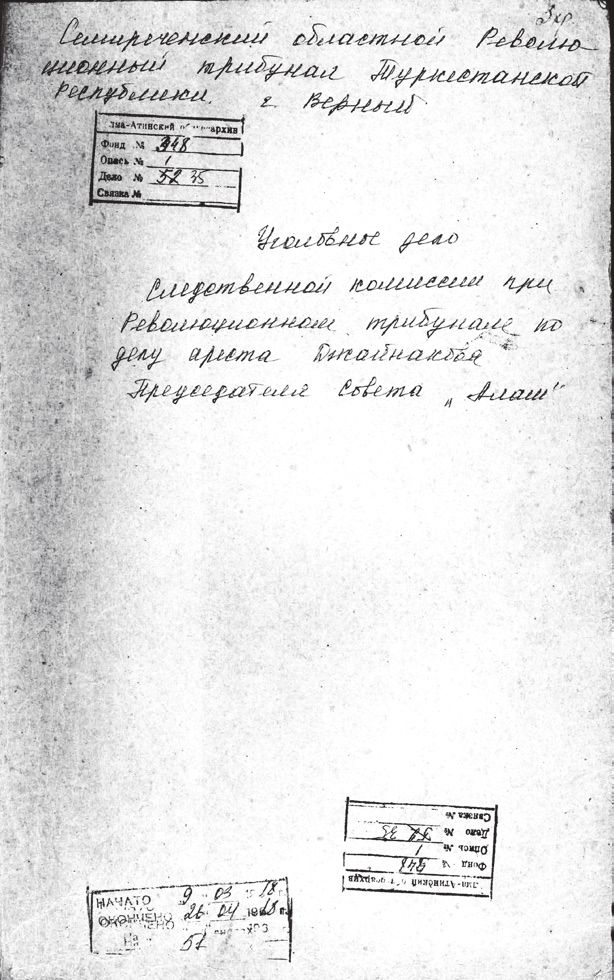 Семиреченский областной Револю-
ционный трибунал Туркестанской
Республики. г. Верный
лма-Атинский о архив
Фонд № 348
Опись № 1
Дело № 52 35
Связка №
Уголовное дело
Следственной комиссии при
Революционном трибунале по
делу ареста Джайнакова
Председателя Совета „Алаш"
лма-Атинский архив
Фонд № 348
Опись № 1
Дело № 52 35
Связка №
НАЧАТО 9 03 18
ОКОНЧЕНО 26 04 1918 г.
На 57